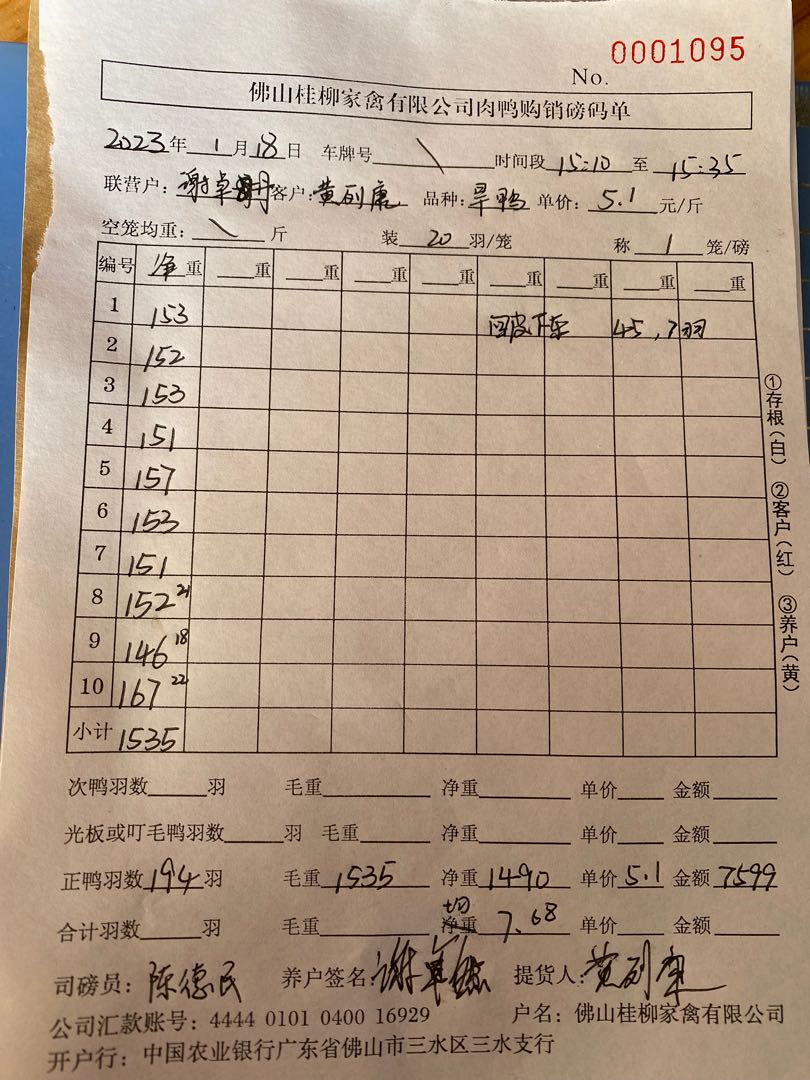 No. 0001095
佛山桂柳家禽有限公司肉鸭购销磅码单
2023年 1 月 18 日 车牌号 \ 时间段 15:10 至 15:35
联营户: 谢卓 客户: 黄列康 品种: 旱鸭 单价: 5.1 元/斤
空笼均重: \ 斤 装 20 羽/笼 称 1 笼/磅
编号 净重 重 重 重 重 重 重 重 重
1 153 45, 7羽
2 152
3 153
4 151
5 157
6 153
7 151
8 152 21
9 146 18
10 167 22
小计 1535
①存根(白) ②客户(红) ③养户(黄)
次鸭羽数 羽 毛重 净重 单价 金额
光板或叮毛鸭羽数 羽 毛重 净重 单价 金额
正鸭羽数 194 羽 毛重 1535 净重 1490 单价 5.1 金额 7599
合计羽数 羽 毛重 均重 7.68 单价 金额
司磅员: 陈德民 养户签名: 提货人: 黄列康
公司汇款账号: 4444 0101 0400 16929 户名: 佛山桂柳家禽有限公司
开户行: 中国农业银行广东省佛山市三水区三水支行